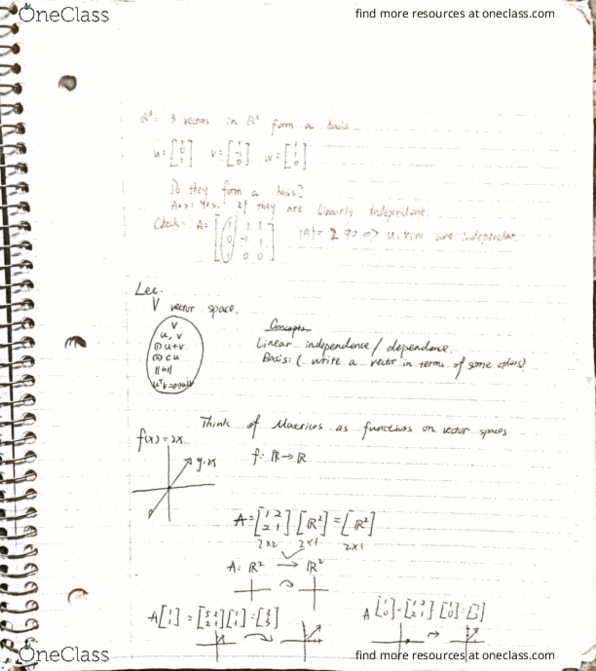 OneClass
find more resources at oneclass.com
3 vectors in form a basis
u = v = w =
Do they form a basis?
Ans: Yes. If they are linearly independent.
Check: A =
|A| = 2 => u, v, w are
Lec.
V vector space.
V
u, v
① u+v
② cu
||u||
Concepts
Linear independence / dependence.
Basis: ( write a vector in terms of some others)
Think of Matrices as functions on vector spaces
f(x) = 2x.
y=2x
f: ℝ → ℝ
A = [1 2; 2 1] [ℝ²] = [ℝ²]
2x2 2x1 2x1
A: ℝ² → ℝ²
A [1; 1] =
A [1; 0] = [1 2; 2 1] [1; 0] =
OneClass
find more resources at oneclass.com